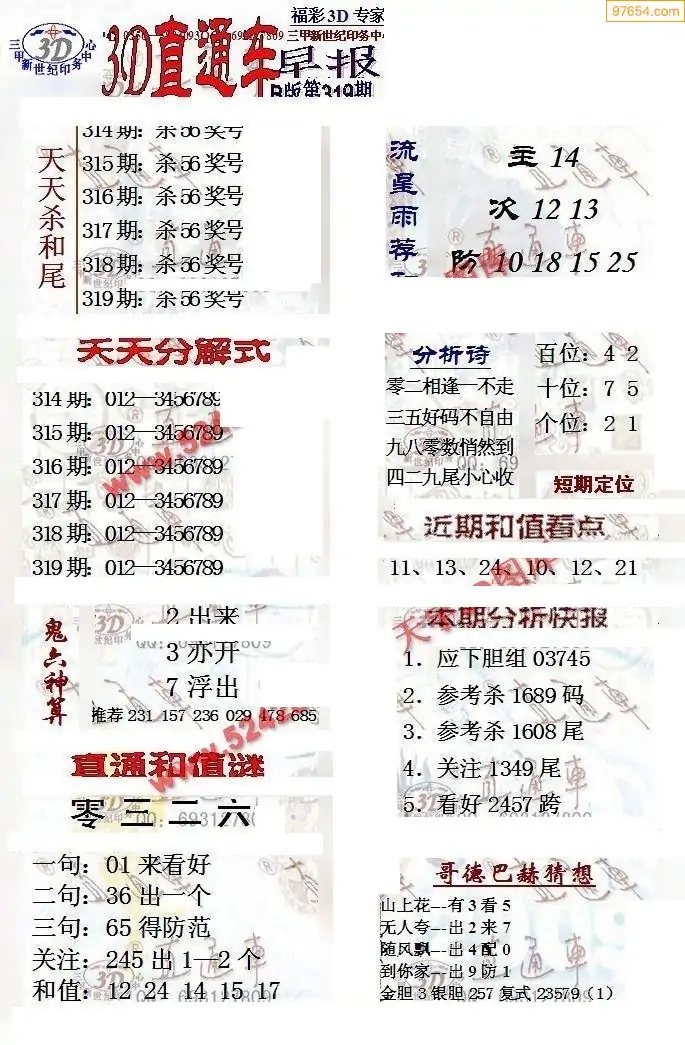 97654.com
福彩3D专家
三甲新世纪印务中心
3D
3D直通车
早报
三甲新世纪印务中心
B版第319期
天天杀和尾
314期：杀56奖号
315期：杀56奖号
316期：杀56奖号
317期：杀56奖号
318期：杀56奖号
319期：杀56奖号
流星雨荐
主 14
次 12 13
防 10 18 15 25
天天分解式
314期：012—3456789
315期：012—3456789
316期：012—3456789
317期：012—3456789
318期：012—3456789
319期：012—3456789
分析诗
零二相逢一不走
三五好码不自由
九八零数悄然到
四二九尾小心收
百位：4 2
十位：7 5
个位：2 1
短期定位
近期和值看点
11、13、24、10、12、21
鬼六神算
2出来
3亦开
7浮出
推荐 231 157 236 029 478 685
本期分析快报
1．应下胆组03745
2．参考杀1689码
3．参考杀1608尾
4．关注1349尾
5．看好2457跨
直通和值谜
零三二六
一句：01来看好
二句：36出一个
三句：65得防范
关注：245出1—2个
和值：12 24 14 15 17
哥德巴赫猜想
山上花---有3看5
无人夸---出2来7
随风飘---出4配0
到你家---出9防1
金胆3银胆257复式23579（1）